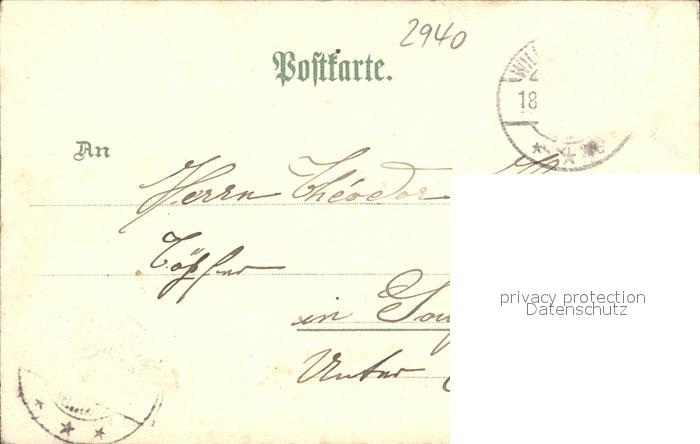 2940
Postkarte.
WILL
18
An
Herrn Théodor
Töpfer
in
Unter
privacy protection
Datenschutz